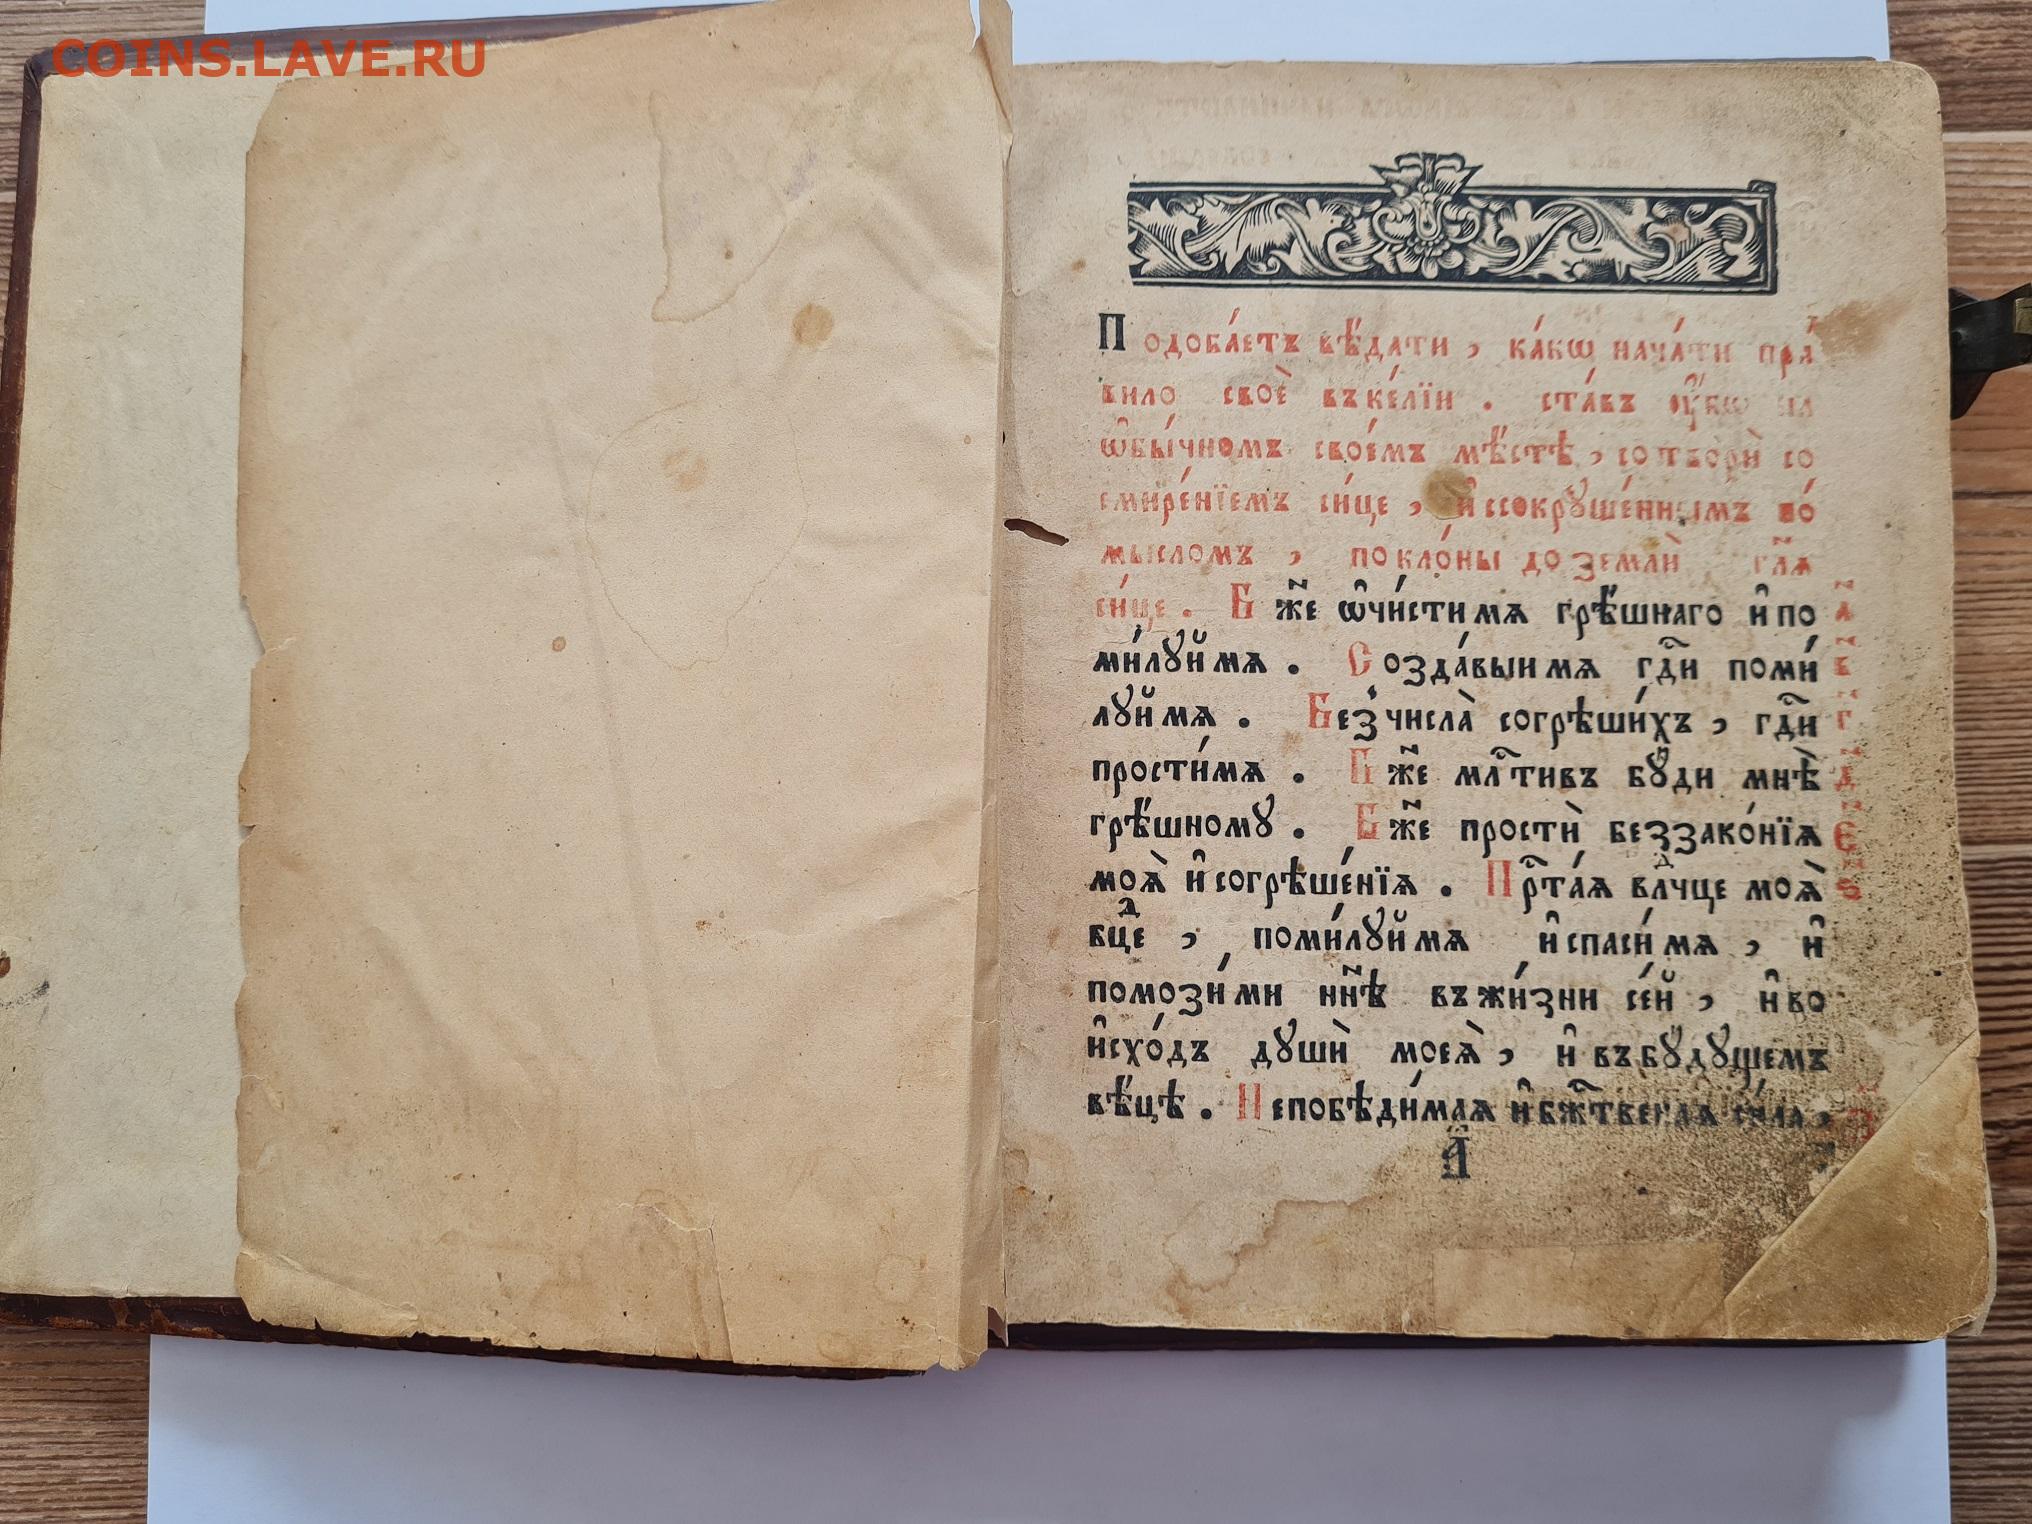 COINS.LAVE.RU
Подоба́етъ вѣ́дати, ка́кѡ нача́ти пра́
вило своѐ въке́лїи. ста́въ ᲂу҆́бѡ на
ѡ҆бы́чномъ свое́мъ мѣ́стѣ, сотворѝ со
смире́нїемъ си́це, и҆ссокрꙋше́ннымъ по́
мысломъ, покло́ны доземлѝ гл҃ѧ
си́це. Бж҃е ѡ҆чи́стимѧ грѣ́шнаго и҆по
ми́лꙋймѧ. Созда́выимѧ гдⷭ҇и поми́
лꙋймѧ. Без̾числа̀ согрѣши́хъ, гдⷭ҇и
прости́мѧ. Бж҃е млⷭ҇тивъ бꙋ́ди мнѣ̀
грѣ́шномꙋ. Бж҃е простѝ беззако́нїѧ
моѧ̀ и҆согрѣше́нїѧ. Прⷭ҇та́ѧ влⷣчце моѧ̀
бцⷣе, поми́лꙋймѧ и҆спаси́мѧ, и҆
помози́ми нн҃ѣ въжи́зни се́й, и҆во
и҆схо́дъ дꙋшѝ моеѧ̀, и҆въбꙋ́дꙋщемъ
вѣ́цѣ. Непобѣди́маѧ и҆бж҃твенаѧ си́ла,
а҃